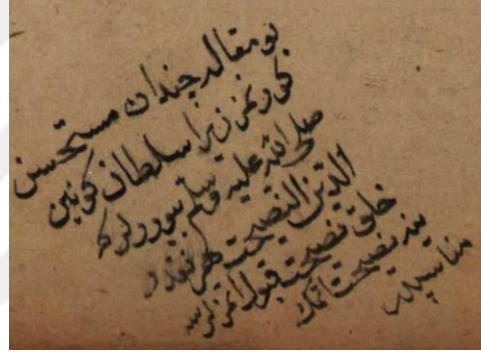 بو مقاله چندان مستحسن
كورنمز زيرا سلطان كونين
صلى الله عليه وسلم بيورلر كه
الدين النصيحت هر نقدر
خلق نصيحت قبول اتمزلرسه
ينه نصيحت اتمك
مناسبدر